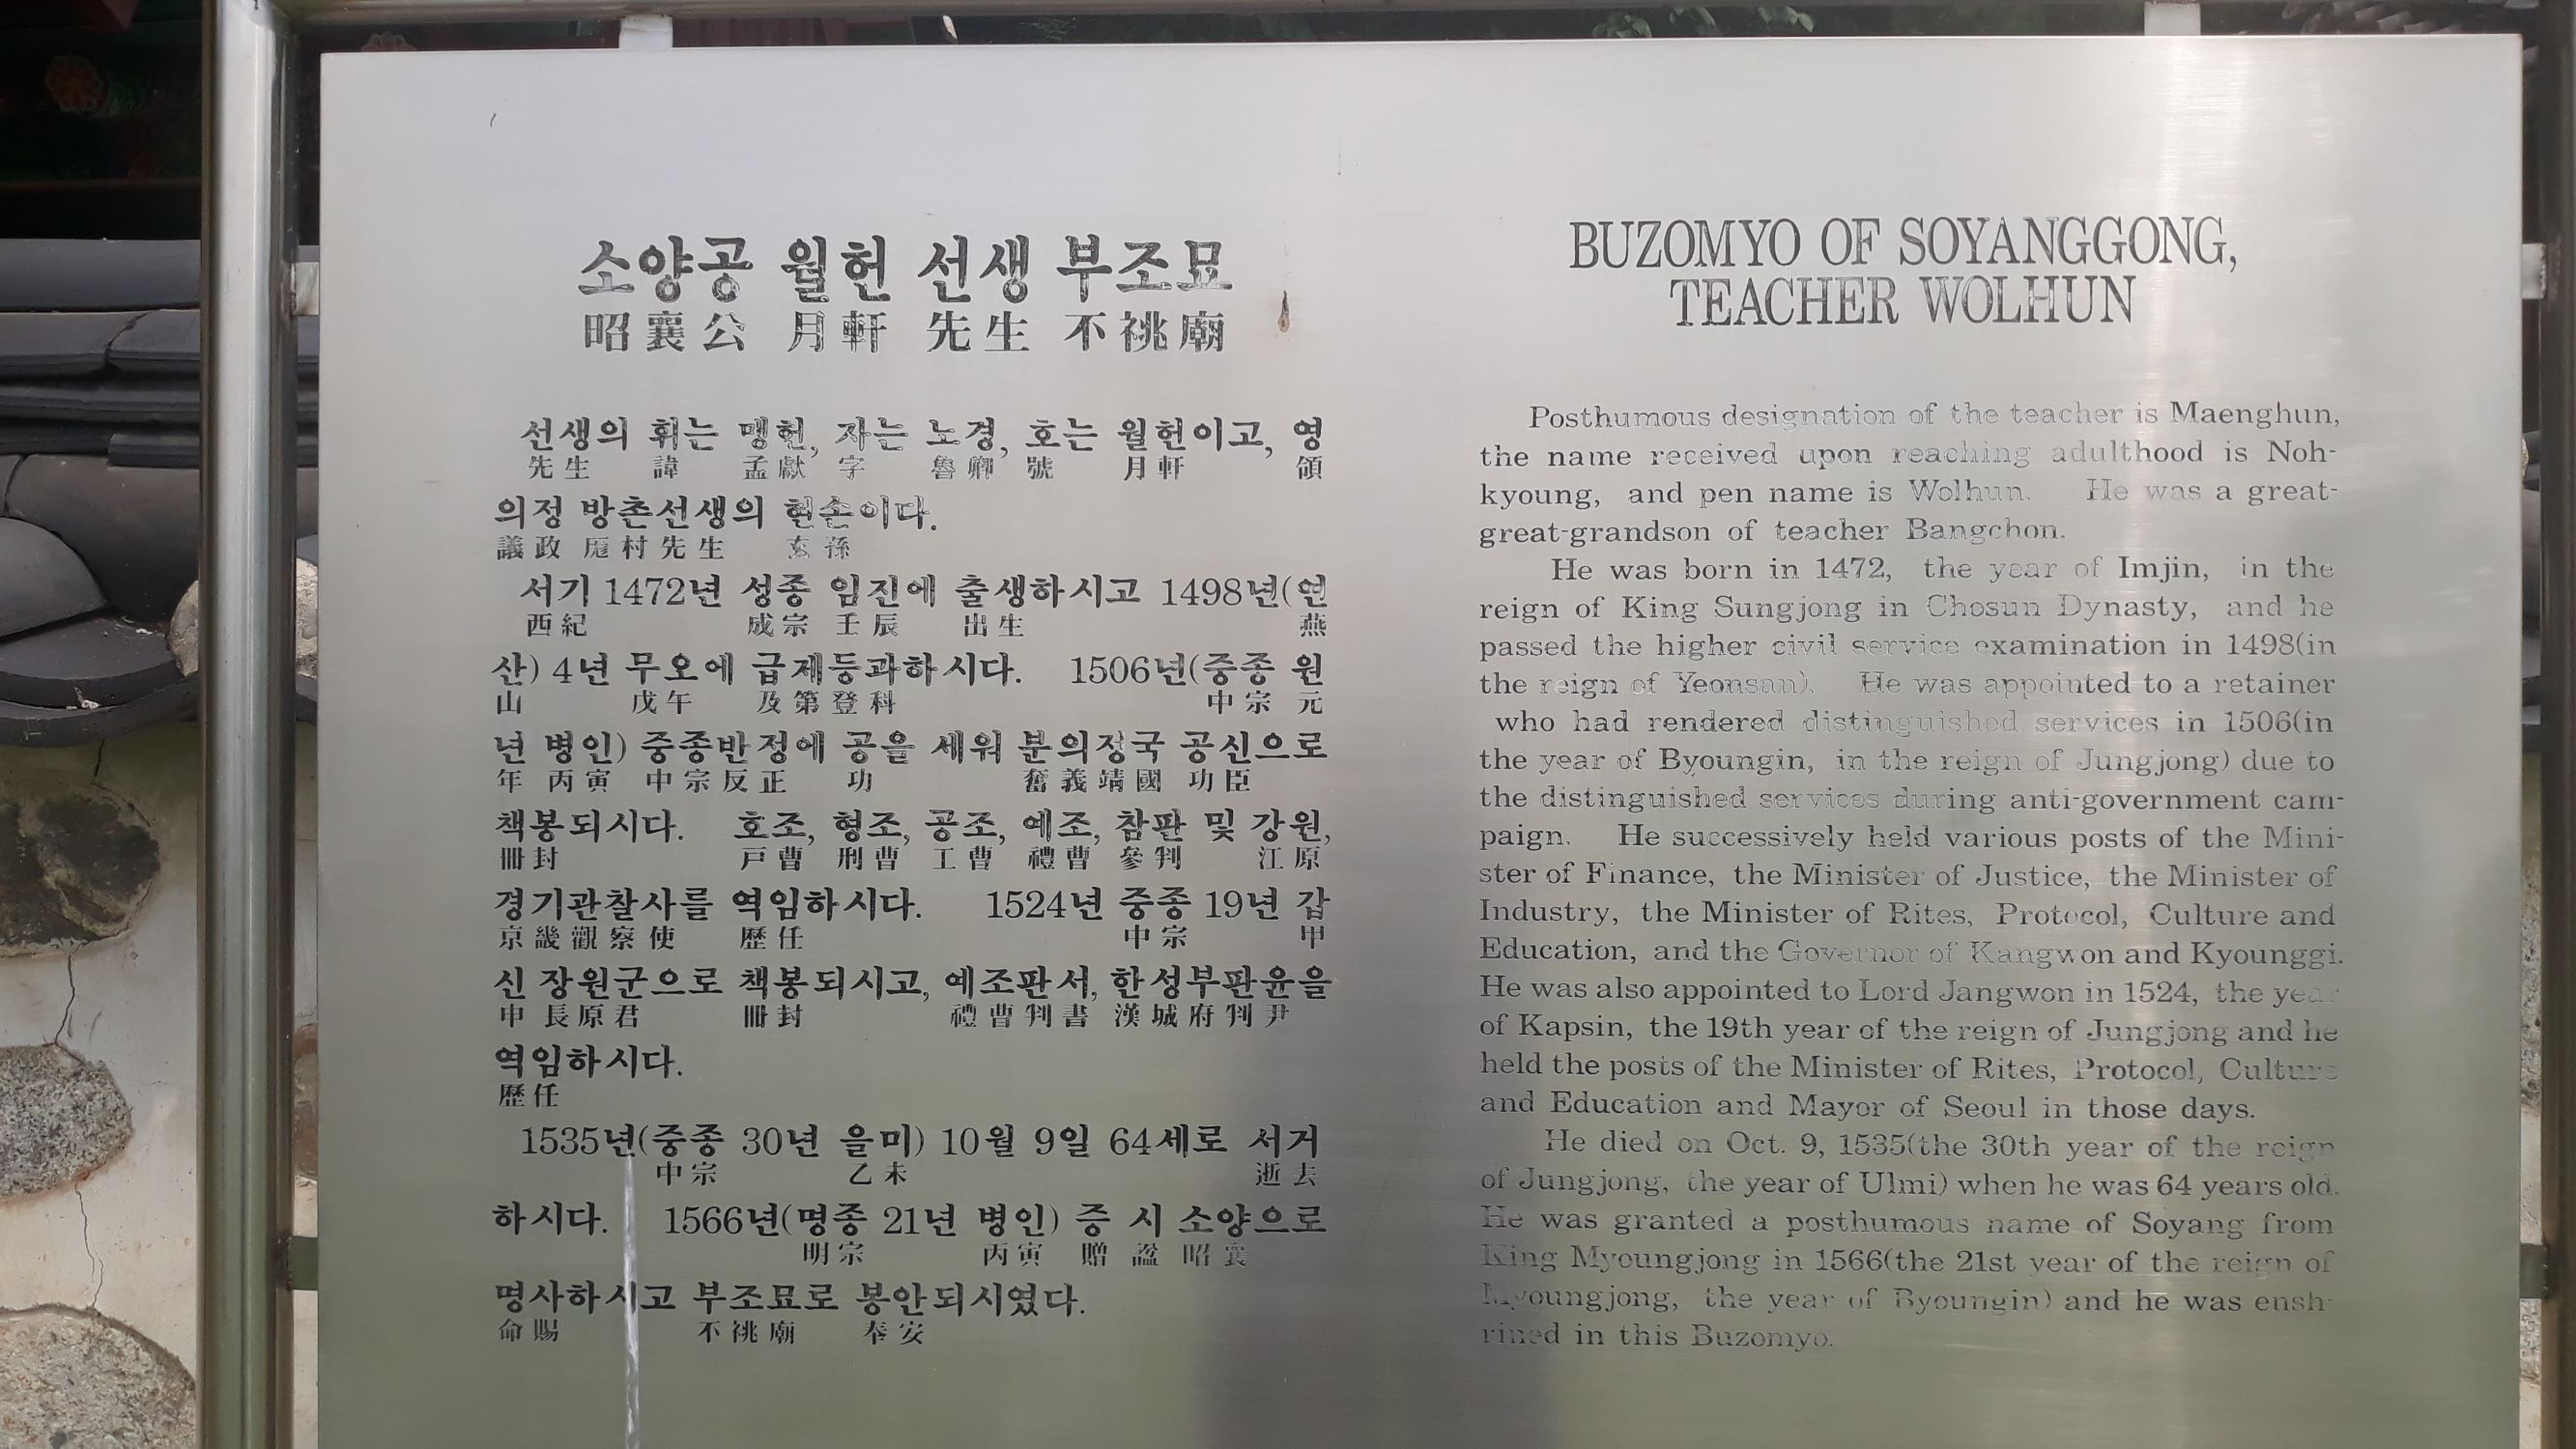 소양공 월헌 선생 부조묘
昭襄公 月軒 先生 不祧廟
선생의 휘는 맹헌, 자는 노경, 호는 월헌이고, 영
先生 諱 孟獻 字 魯卿 號 月軒 領
의정 방촌선생의 현손이다.
議政 厖村先生 玄孫
서기 1472년 성종 임진에 출생하시고 1498년(연
西紀 成宗 壬辰 出生 燕
산) 4년 무오에 급제등과하시다. 1506년(중종 원
山 戊午 及第登科 中宗 元
년 병인) 중종반정에 공을 세워 분의정국 공신으로
年 丙寅 中宗反正 功 奮義靖國 功臣
책봉되시다. 호조, 형조, 공조, 예조, 참판 및 강원,
冊封 戸曹 刑曹 工曹 禮曹 參判 江原
경기관찰사를 역임하시다. 1524년 중종 19년 갑
京畿觀察使 歷任 中宗 甲
신 장원군으로 책봉되시고, 예조판서, 한성부판윤을
申 長原君 冊封 禮曹判書 漢城府判尹
역임하시다.
歷任
1535년(중종 30년 을미) 10월 9일 64세로 서거
中宗 乙未 逝去
하시다. 1566년(명종 21년 병인) 증 시 소양으로
明宗 丙寅 贈 諡 昭襄
명사하시고 부조묘로 봉안되시였다.
命賜 不祧廟 奉安
BUZOMYO OF SOYANGGONG,
TEACHER WOLHUN
Posthumous designation of the teacher is Maenghun,
the name received upon reaching adulthood is Noh-
kyoung, and pen name is Wolhun. He was a great-
great-grandson of teacher Bangchon.
He was born in 1472, the year of Imjin, in the
reign of King Sungjong in Chosun Dynasty, and he
passed the higher civil service examination in 1498(in
the reign of Yeonsan). He was appointed to a retainer
who had rendered distinguished services in 1506(in
the year of Byoungin, in the reign of Jungjong) due to
the distinguished services during anti-government cam-
paign. He successively held various posts of the Mini-
ster of Finance, the Minister of Justice, the Minister of
Industry, the Minister of Rites, Protocol, Culture and
Education, and the Governor of Kangwon and Kyounggi.
He was also appointed to Lord Jangwon in 1524, the year
of Kapsin, the 19th year of the reign of Jungjong and he
held the posts of the Minister of Rites, Protocol, Culture
and Education and Mayor of Seoul in those days.
He died on Oct. 9, 1535(the 30th year of the reign
of Jungjong, the year of Ulmi) when he was 64 years old.
He was granted a posthumous name of Soyang from
King Myoungjong in 1566(the 21st year of the reign of
Myoungjong, the year of Byoungin) and he was ensh-
rined in this Buzomyo.